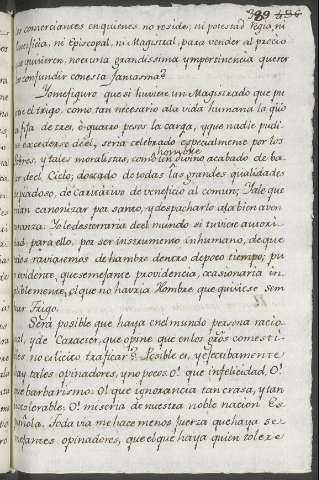 389 496
comerciantes en quienes no reside, ni potestad Regia, ni
Pontificia, ni Episcopal, ni Magistral, para vender al precio
que quisieren, no era una grandissima ympertinencia querer
los confundir con esta fantasma?
Yo me figuro que si huviere un Magistrado que pu
el trigo, como tan necesario a la vida humana la
fija de tres, ò quatro pesos la carga, y que nadie pudi
excederse de el, seria celebrado especialmente por los
Pobres, y tales moralistas, como un divino acabado de ba
hombre
xar del Cielo; dotado de todas las grandes qualidades
piadoso, de caritativo de venefico al comun; Tale que
rian canonizar por santo, y despacharlo a la bien aven
turanza. Yo le desterraria del mundo si tuviere autori
dad para ello, por ser instrumento inhumano, de que
raviaremos de hambre dentro de poco tiempo; pu
evidente, que semejante providencia, ocasionaria in
faliblemente, el que no havria Hombre que quisiese sem
brar Trigo.
Será posible que haya en el mundo persona racio
nal, y de Caracter, que opine que en los gros comesti
bles no es licito traficar? Posible es, y efectibamente
hay tales opinadores, y no pocos. O! que infelicidad, O!
que barbarismo. O! que ignorancia tan crasa, y tan
intolerable. O! miseria de nuestra noble nacion Es
pañola. Toda via me hace menos fuerza que haya se
mejantes opinadores, que el que haya quien tolere